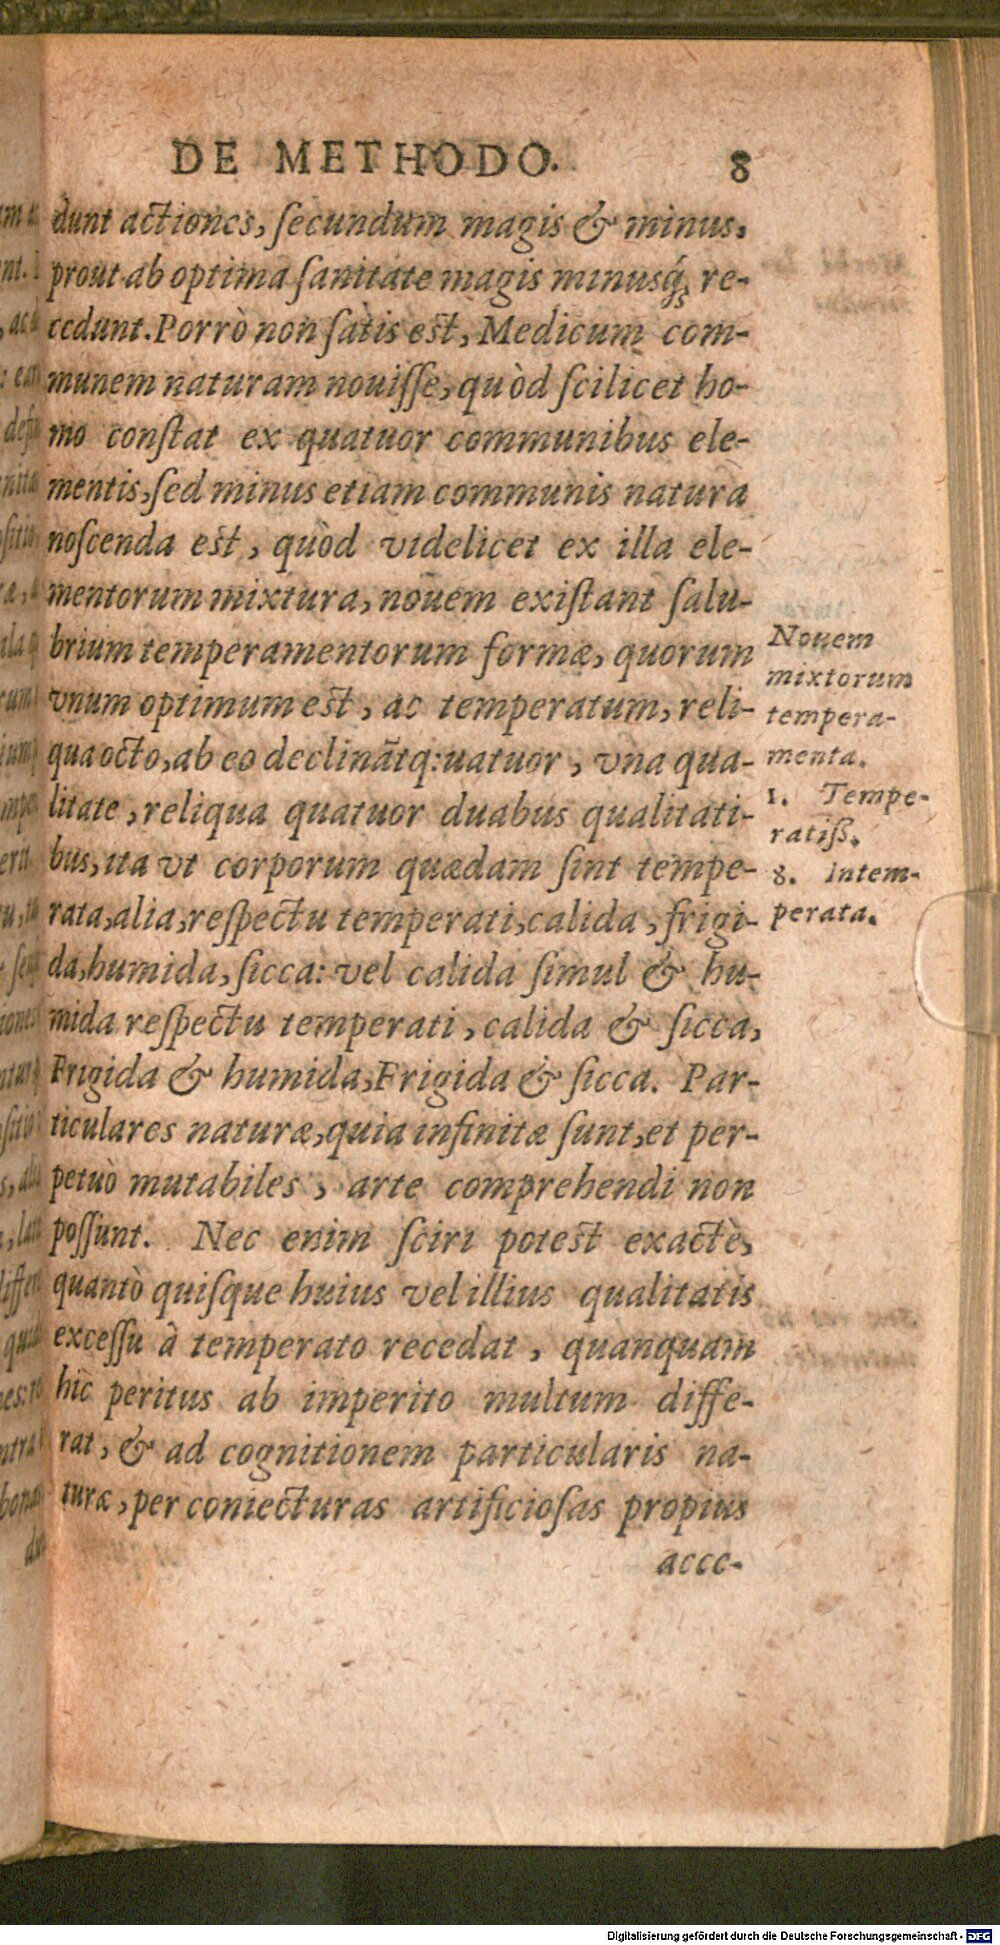 DE METHODO. 8
dunt actiones, ſecundum magis & minus,
prout ab optima ſanitate magis minusq́; re-
cedunt. Porrò non ſatis eſt, Medicum com-
munem naturam nouiſſe, quòd ſcilicet ho-
mo conſtat ex quatuor communibus ele-
mentis, ſed minus etiam communis natura
noſcenda eſt, quòd videlicet ex illa ele-
mentorum mixtura, nouem exiſtant ſalu-
brium temperamentorum formæ, quorum
vnum optimum eſt, ac temperatum, reli-
qua octo, ab eo declinãtq:uatuor, vna qua-
litate, reliqua quatuor duabus qualitati-
bus, ita vt corporum quædam ſint tempe-
rata, alia, reſpectu temperati, calida, frigi-
da, humida, ſicca: vel calida ſimul & hu-
mida reſpectu temperati, calida & ſicca,
Frigida & humida, Frigida & ſicca. Par-
ticulares naturæ, quia infinitæ ſunt, et per-
petuò mutabiles, arte comprehendi non
poſſunt. Nec enim ſciri poteſt exactè,
quantò quiſque huius vel illius qualitatis
exceſſu à temperato recedat, quanquam
hic peritus ab imperito multum diffe-
rat, & ad cognitionem particularis na-
turæ, per coniecturas artificioſas propius
acce-
Nouem
mixtorum
tempera-
menta.
1. Tempe-
ratiſſ.
8. Intem-
perata.
Digitalisierung gefördert durch die Deutsche Forschungsgemeinschaft - DFG